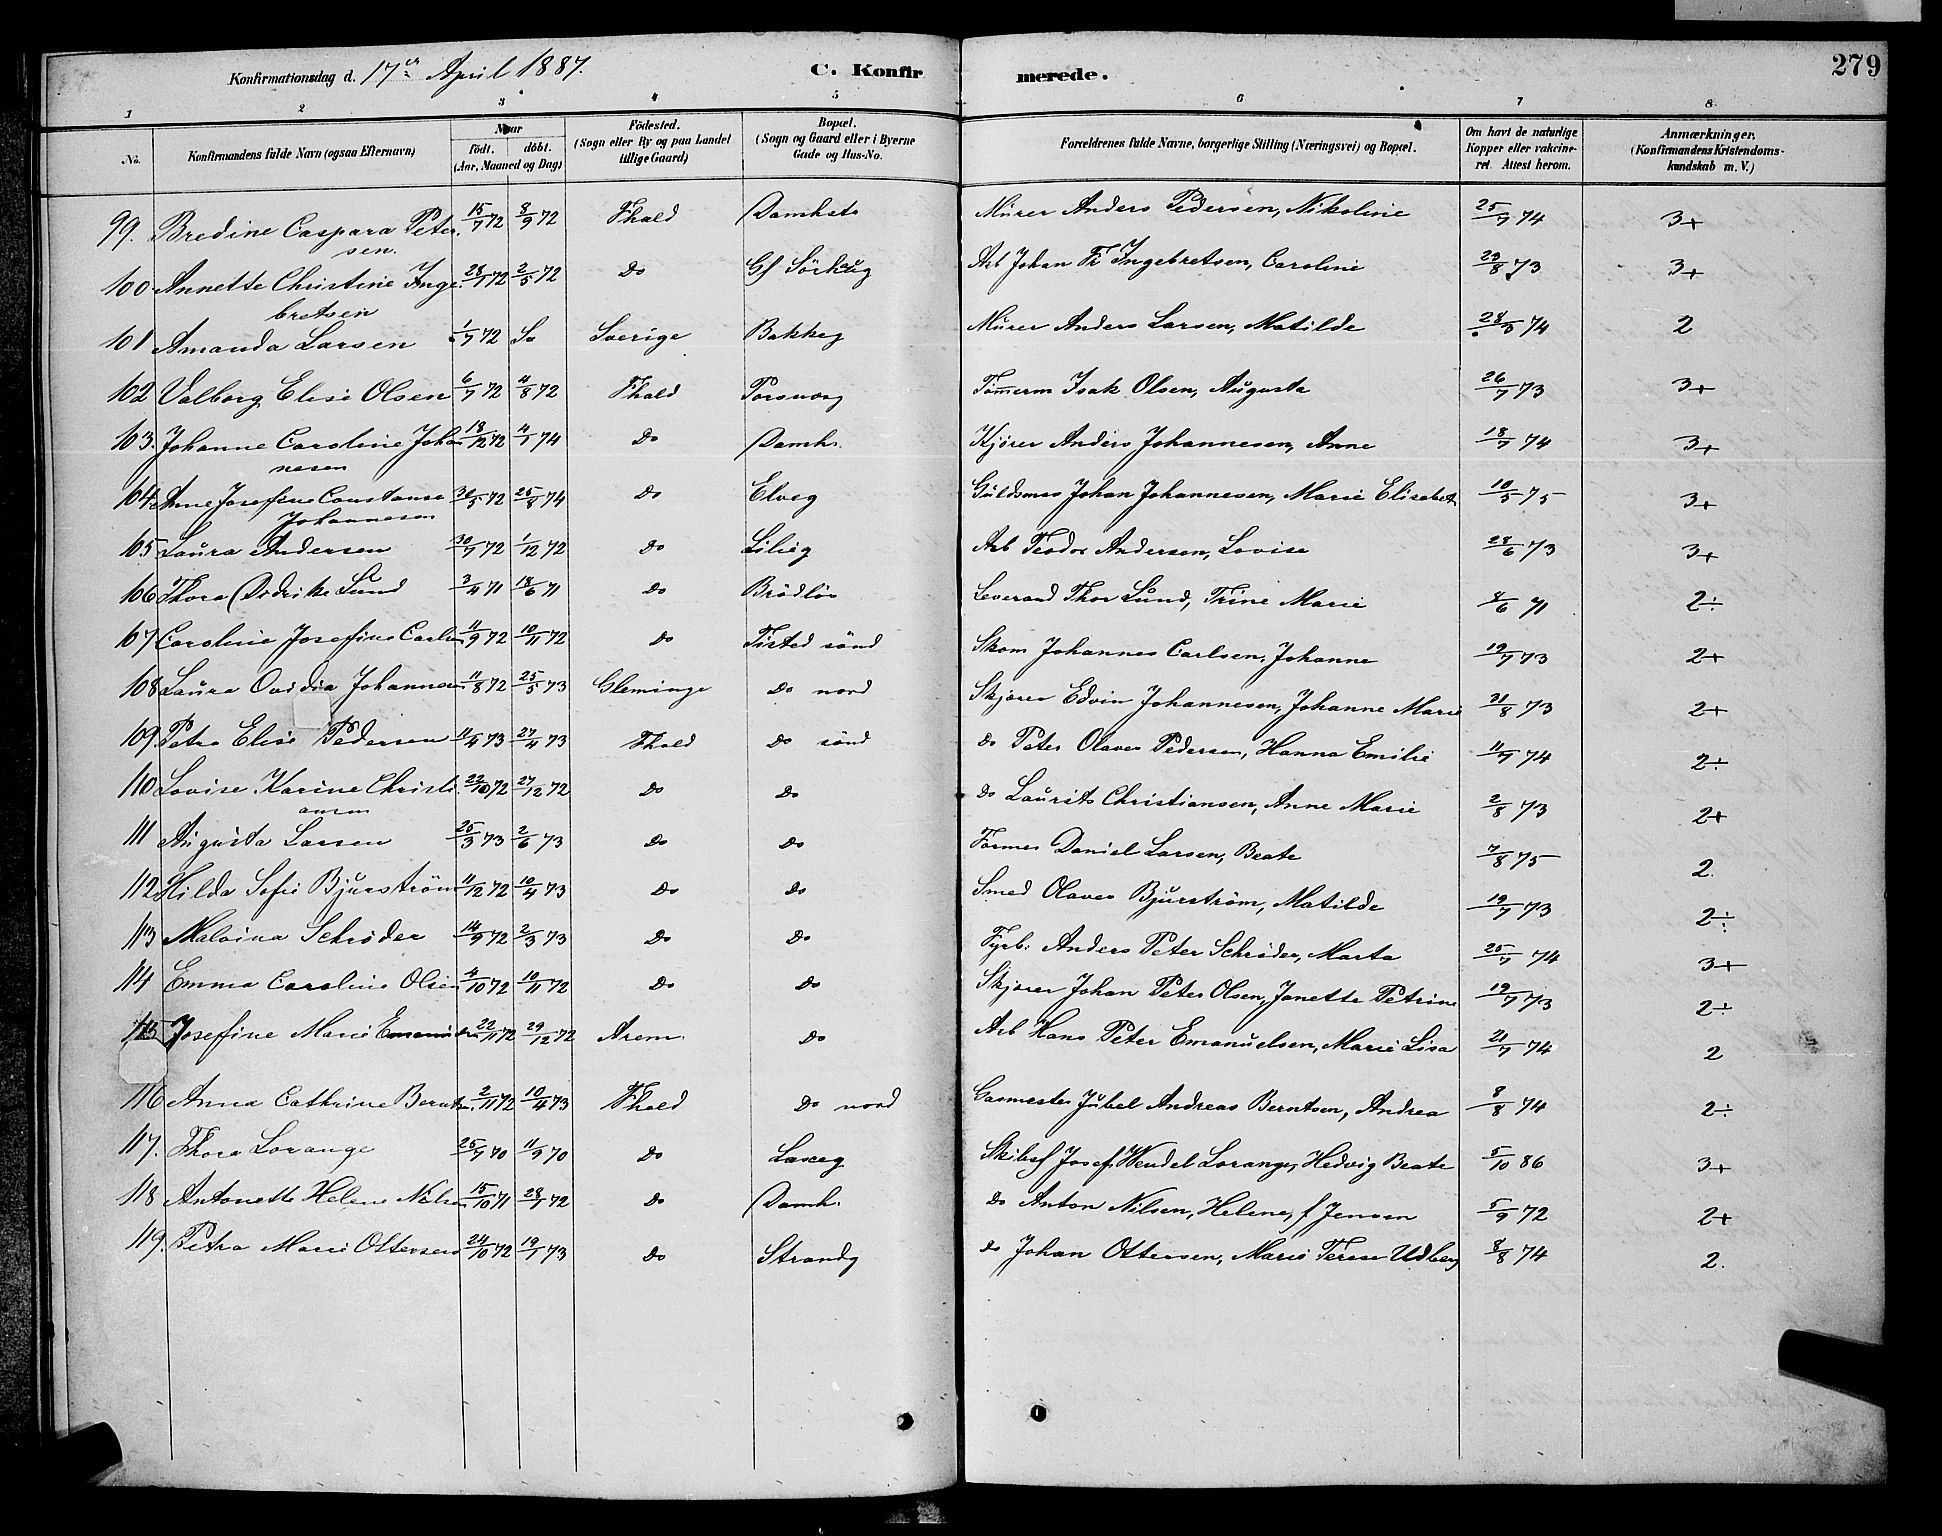 279
Konfirmationsdag d. 17de April 1887. C. Konfirmerede.
1 2 3 4 5 6 7 8
No. Konfirmandens fulde Navn (ogsaa Efternavn) Naar födt. döbt. (Aar, Maaned og Dag) Födested. (Sogn eller By og paa Landet tillige Gaard) Bopæl. (Sogn og Gaard eller i Byerne Gade og Hus-No. Forældrenes fulde Navne, borgerlige Stilling (Næringsvei) og Bopæl. Om havt de naturlige Kopper eller vakcineret. Attest herom. Anmærkninger. (Konfirmandens Kristendomskundskab m. V.)
99. Bredine Caspara Petersen. 15/7 72 8/9 72 Fhald Damhstr Murer Anders Pedersen, Nikoline 25/7 74 3+
100 Annette Christine Ingebretsen 28/1 72 2/5 72 Do Gl Sörkeug Arb Johan Fr Ingebretsen, Caroline 29/8 73 3+
101 Amanda Larsen 1/7 72 Sv Sverige Bakkeg Murer Anders Larsen, Matilde 28/8 74 2
102 Valborg Elise Olsen 6/7 72 11/8 72 Fhald Porsnorg Tömerm Isak Olsen, Augusta 26/7 73 3+
103. Johanne Caroline Johannesen 18/12 72 4/1 74 Do Damh. Kjører Anders Johannesen, Anne 18/7 74 3+
104. Anne Josefine Constanse Johannesen 30/5 72 25/8 74 Do Elveg Guldsmed Johan Johannesen, Marie Elisabet 10/5 75 3+
105 Laura Andersen 30/7 72 1/12 72 Do Lilieg Arb Teodor Andersen, Lovise 28/6 73 3+
106 Thora Didrikke Lund 3/4 71 18/6 71 Do Brödlös Leverand Thor Lund, Trine Marie 8/6 71 2÷
107 Caroline Josefine Carlsen 11/9 72 10/11 72 Do Tisted sönd Skom Johannes Carlsen, Johanne 19/7 73 2+
108 Laura Ovidia Johannesen 11/8 72 25/5 73 Gleminge Do nord Skjører Edvin Johannesen, Johanne Marie 31/8 73 2+
109 Petra Elise Pedersen 11/4 73 27/4 73 Fhald Do sönd Do Peter Olaves Pedersen, Hanna Emilie 11/7 74 2÷
110 Lovise Karine Christiansen 22/10 72 27/12 72 Do Do Do Laurits Christiansen, Anne Marie 2/8 73 2+
111 Augusta Larsen 25/3 73 2/6 73 Do Do Former Daniel Larsen, Beate 7/8 75 2.
112 Hilda Sofie Bjurström 11/12 72 10/4 73 Do Do Smed Olaves Bjurström, Matilde 19/7 73 2÷
113 Malvina Schröder 14/9 72 2/3 73 Do Do Fyrb: Anders Peter Schröder, Marta 25/7 74 3+
114 Emma Caroline Olsen 4/10 72 10/11 72 Do Do Skjører Johan Peter Olsen, Janette Petrine 19/7 73 2÷
115 Josefine Marie Emanuelsen 22/11 72 29/12 72 Arem. Do Arb Hans Peter Emanuelsen, Marie Lisa 21/7 74 2
116 Anna Cathrine Berntsen 2/11 72 10/4 73 Fhald Do nord Gasmester Jubel Andreas Berntsen, Andrea 8/8 74 2÷
117. Thora Lorange 25/7 70 11/9 70 Do Laxeg Skibsf Josef Wendel Lorange, Hedvig Beate 5/10 86 3+
118 Antonette Helene Nilsen 15/10 71 28/1 72 Do Damh. Do Anton Nilsen, Helene, f Jensen 5/9 72 2+
119. Petra Marie Ottersen 24/10 72 19/1 73 Do Strandg Do Johan Ottersen, Marie Terese Udberg 8/8 74 2.